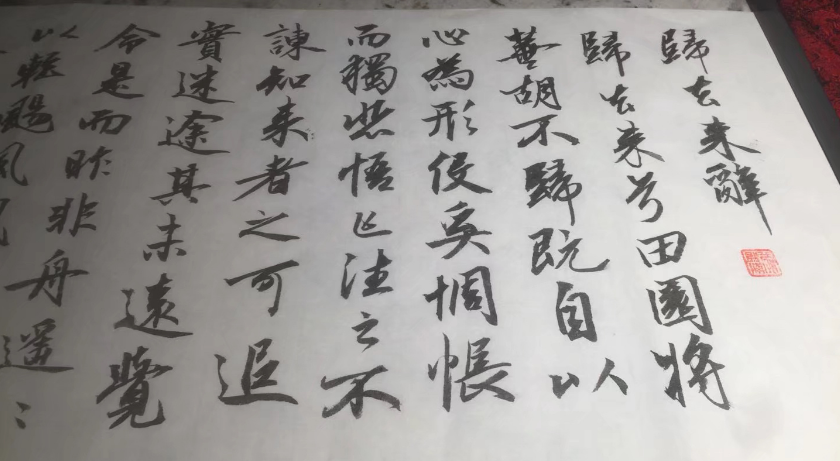 歸去来辭
歸去来兮田園將
蕪胡不歸既自以
心為形役奚惆悵
而獨悲悟已往之不
諫知来者之可追
實迷途其未遠覺
今是而昨非舟遥〻
以輕颺風